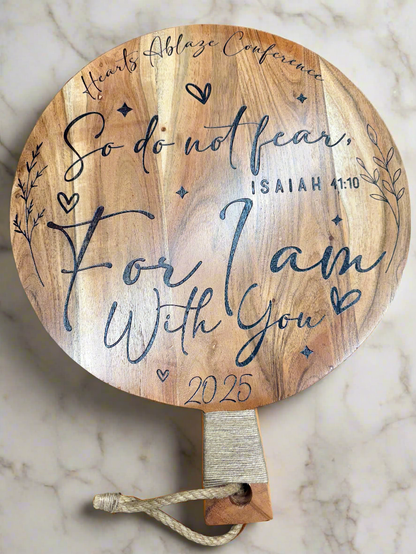 Hearts Ablaze Conference
So do not fear,
ISAIAH 41:10
For I am
With You
2025